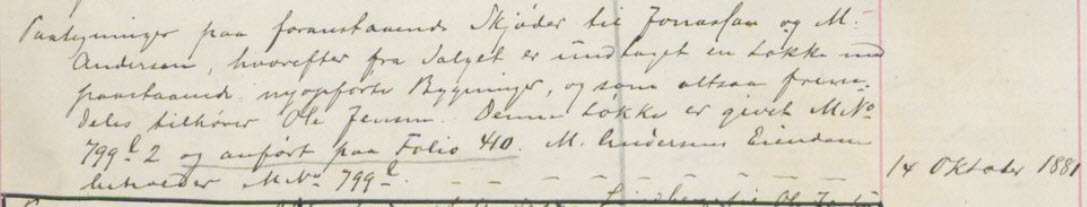 Paategninger paa foranstaaende Skjøder til Jonassen og M.
Andersen, hvorefter fra Salget er undtaget en Løkke med
paastaaende nyopførte Bygninger, og som altsaa frem-
deles tilhører Ole Jensen. Denne Løkke er givet M No
799 b 2 og anført paa Folio 410. M. Andersens Eiendom
beholder M No 799 b. 14 Oktober 1881